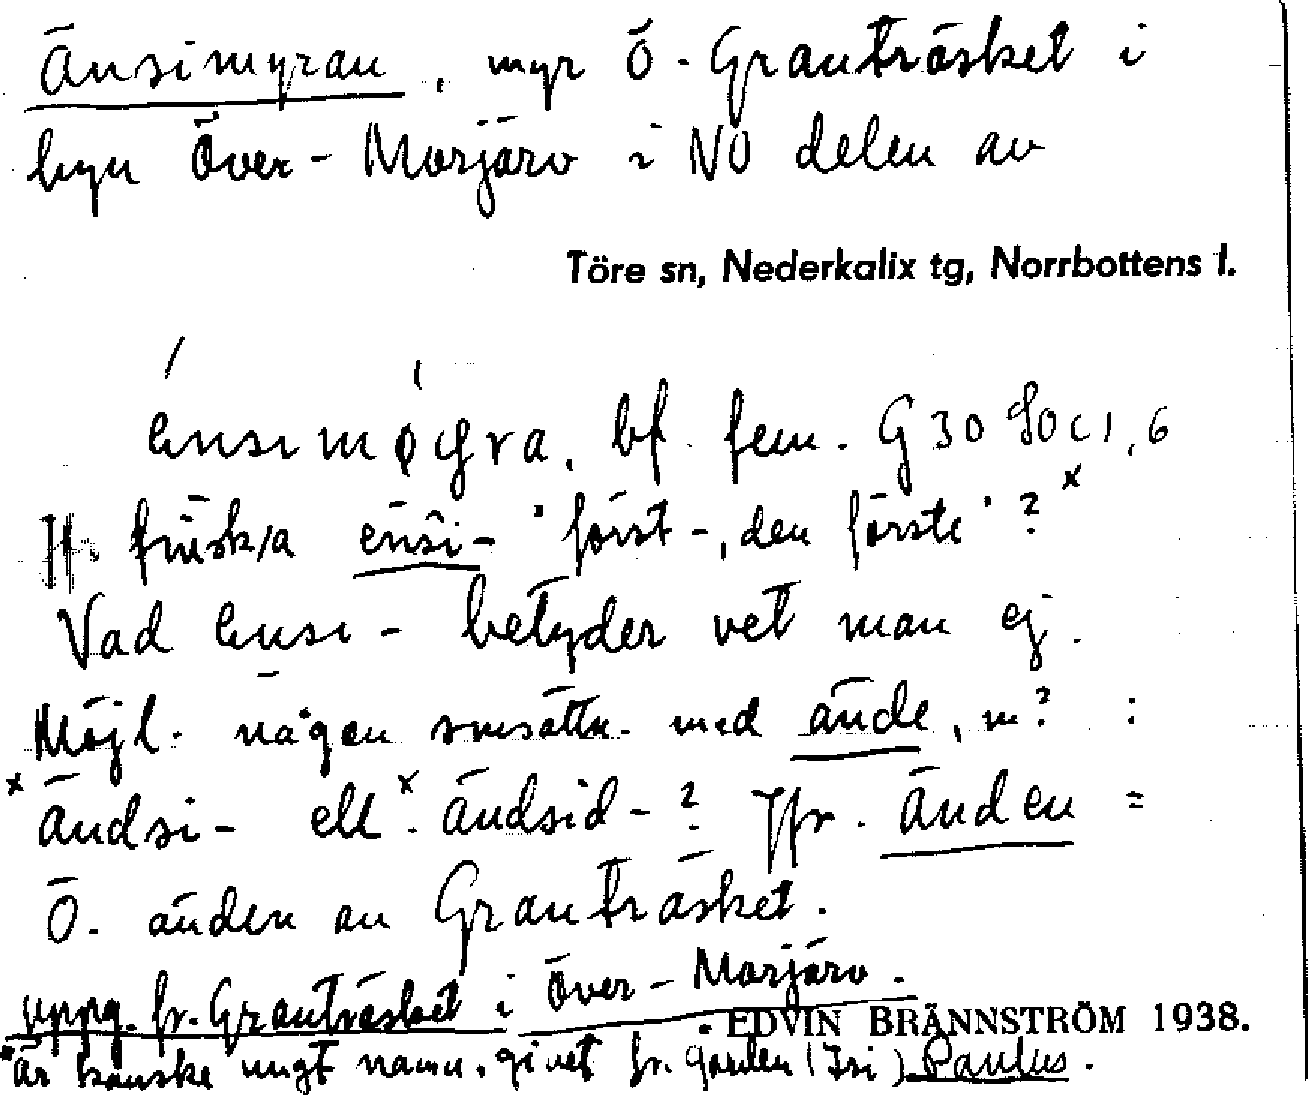 Änsimyran, myr Ö. Granträsket i
byn Över-Morjärv i NÖ delen av
Töre sn, Nederkalix tg, Norrbottens l.
bf. fem.
Jfr finska ensi- 'först-, den förste'? x
Vad ensi- betyder vet man ej.
Möjl. någon smsättn. med ände, m? :
x ändsi- ell. x ändsid-? Jfr. Änden =
Ö. änden av Granträsket.
uppg. fr. Granträsket i Över-Morjärv.
EDVIN BRÄNNSTRÖM 1938.
x Är kanske ungt namn, givet fr. gården Paulus.